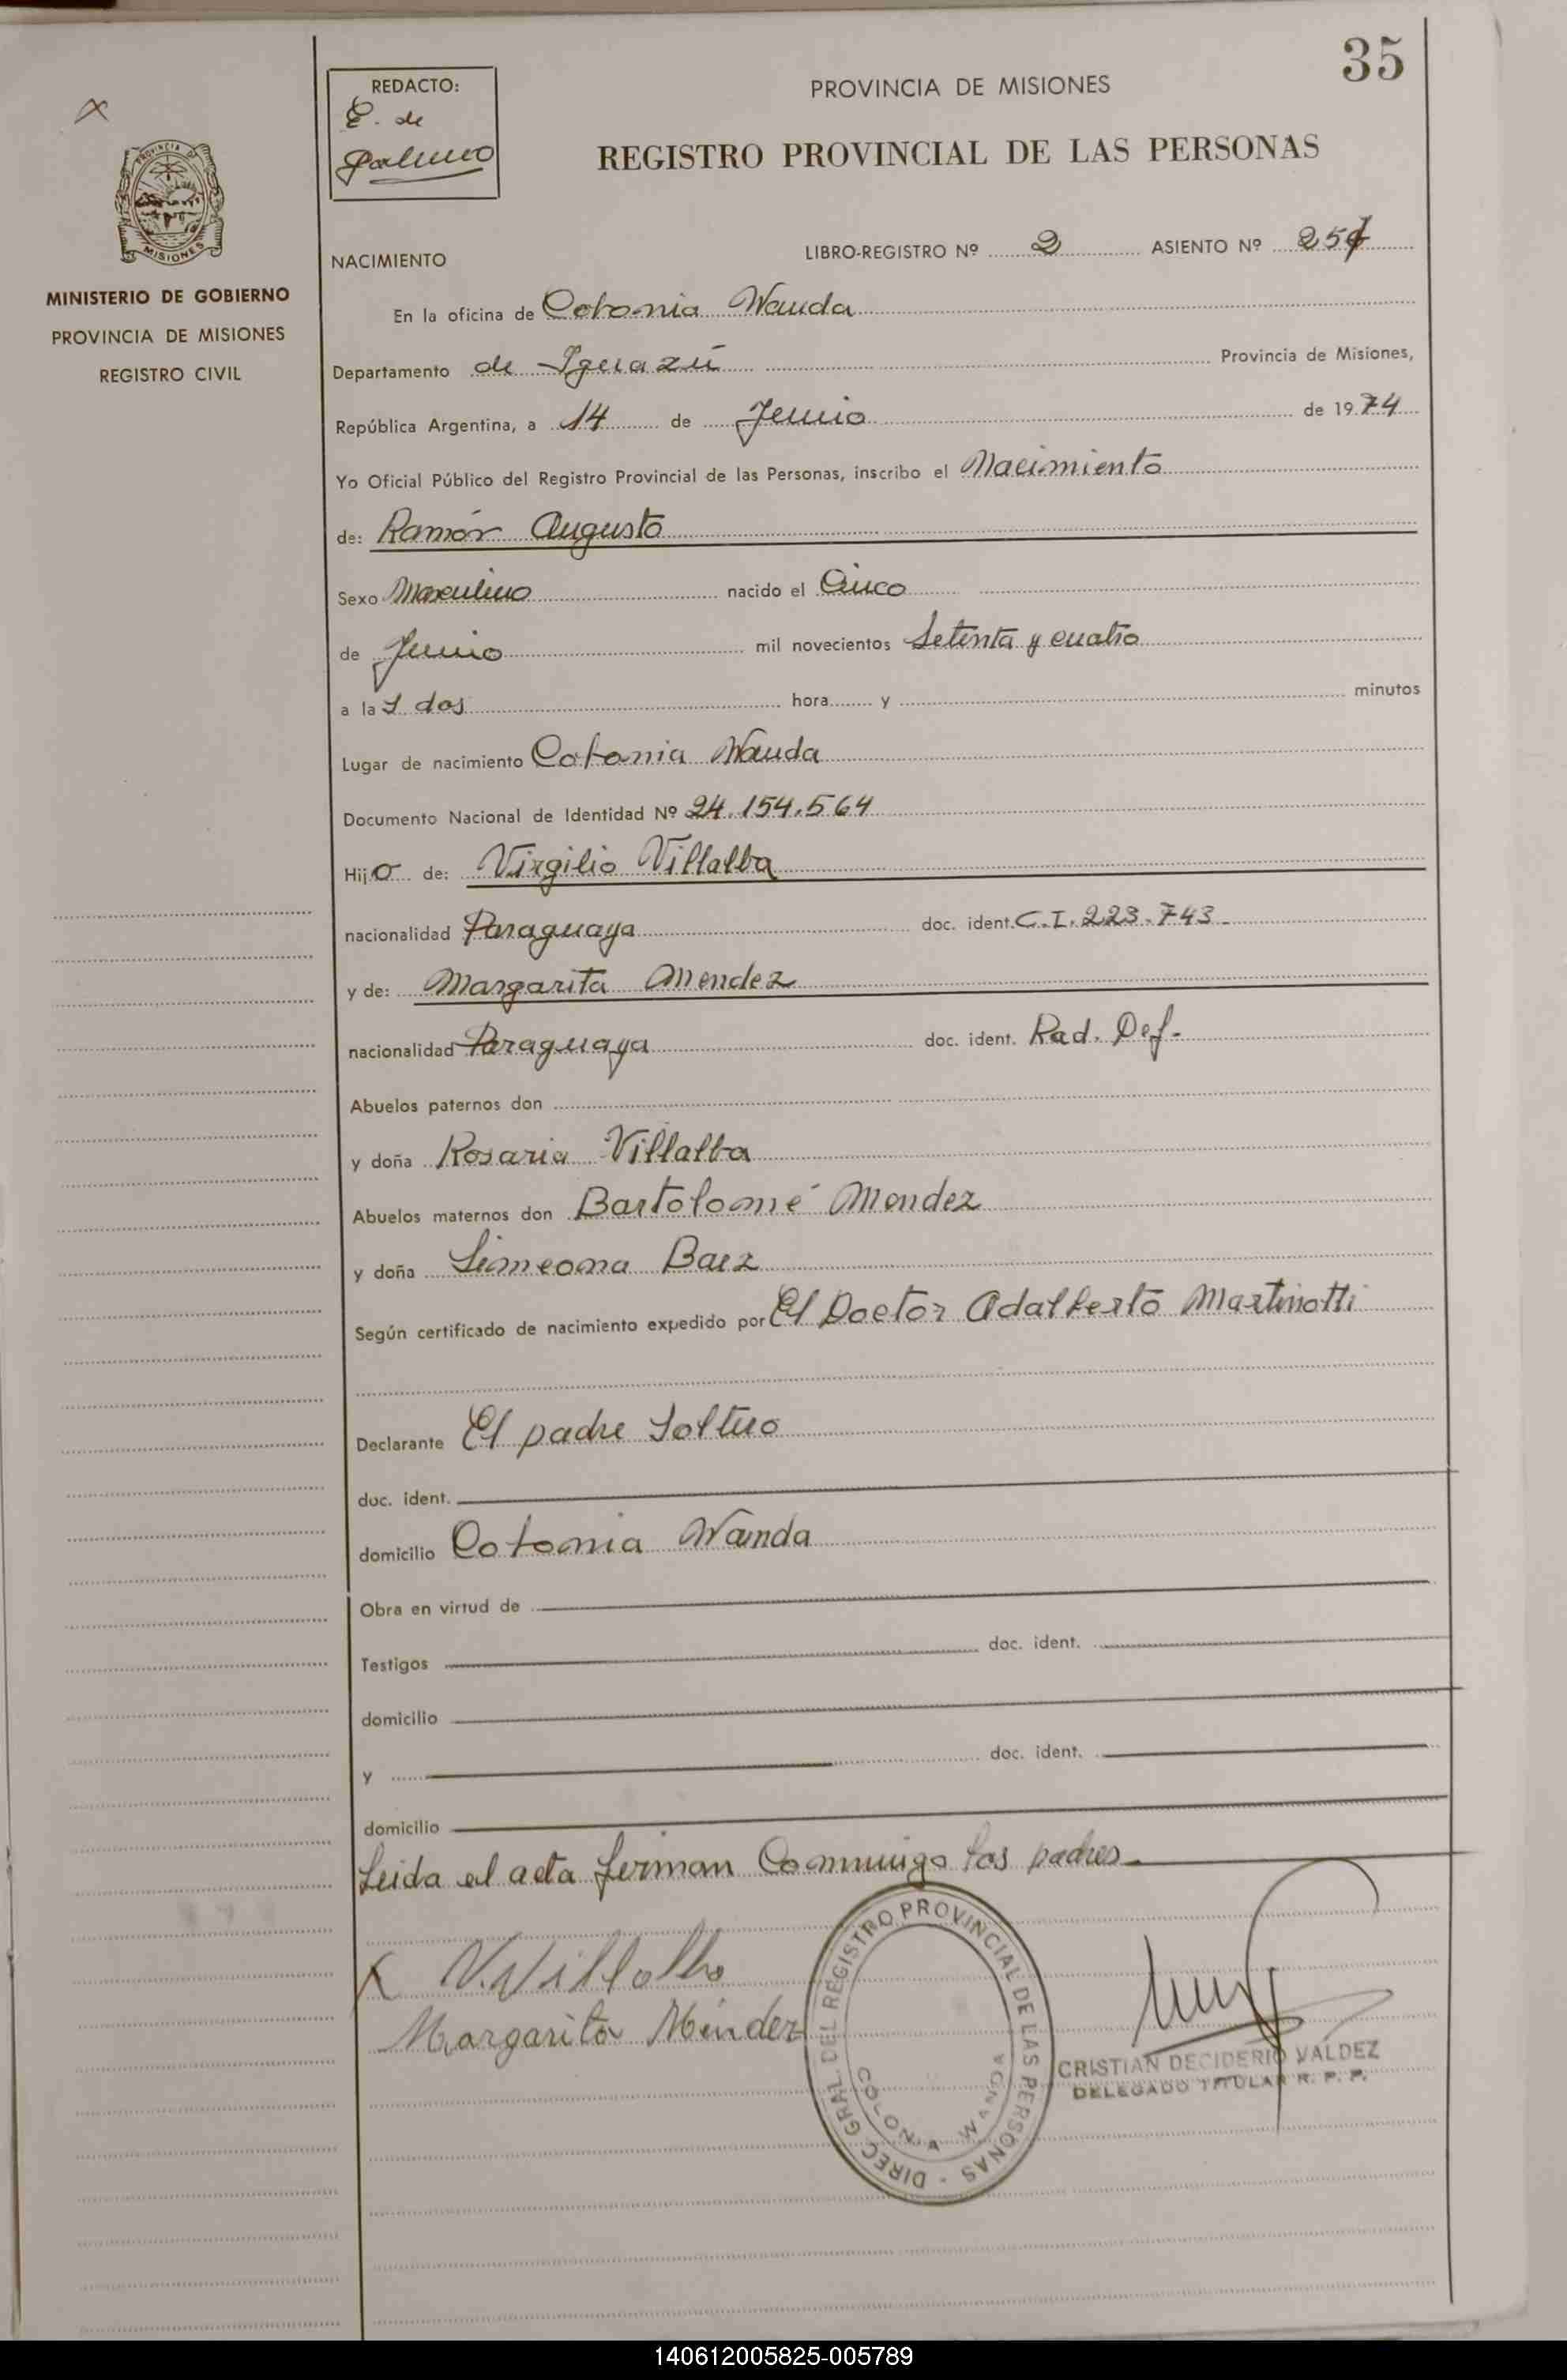 35
REDACTO:
E. de
Galeano
PROVINCIA DE MISIONES
REGISTRO PROVINCIAL DE LAS PERSONAS
PROVINCIA DE
MISIONES
MINISTERIO DE GOBIERNO
PROVINCIA DE MISIONES
REGISTRO CIVIL
NACIMIENTO LIBRO-REGISTRO Nº 2 ASIENTO Nº 257
En la oficina de Colonia Wanda
Departamento de Iguazú Provincia de Misiones,
República Argentina, a 14 de Junio de 1974
Yo Oficial Público del Registro Provincial de las Personas, inscribo el Nacimiento
de: Ramón Augusto
Sexo Masculino nacido el Cinco
de Junio mil novecientos Setenta y cuatro
a las dos hora y minutos
Lugar de nacimiento Colonia Wanda
Documento Nacional de Identidad Nº 24.154.564
Hijo de: Virgilio Villalba
nacionalidad Paraguaya doc. ident. C.I. 223.743-
y de: Margarita Mendez
nacionalidad Paraguaya doc. ident. Rad. Def.
Abuelos paternos don
y doña Rosaria Villalba
Abuelos maternos don Bartolomé Mendez
y doña Simeona Baez
Según certificado de nacimiento expedido por El Doctor Adalberto Martinotti
Declarante El padre Soltero
doc. ident.
domicilio Colonia Wanda
Obra en virtud de
Testigos doc. ident.
domicilio
y doc. ident.
domicilio
Leida el acta firman Conmigo los padres
X V. Villalba
Margarita Méndez
DIREC. GRAL. DEL REGISTRO PROVINCIAL DE LAS PERSONAS -
COLONIA WANDA
CRISTIAN DECIDERIO VALDEZ
DELEGADO TITULAR R. P. P.
140612005825-005789